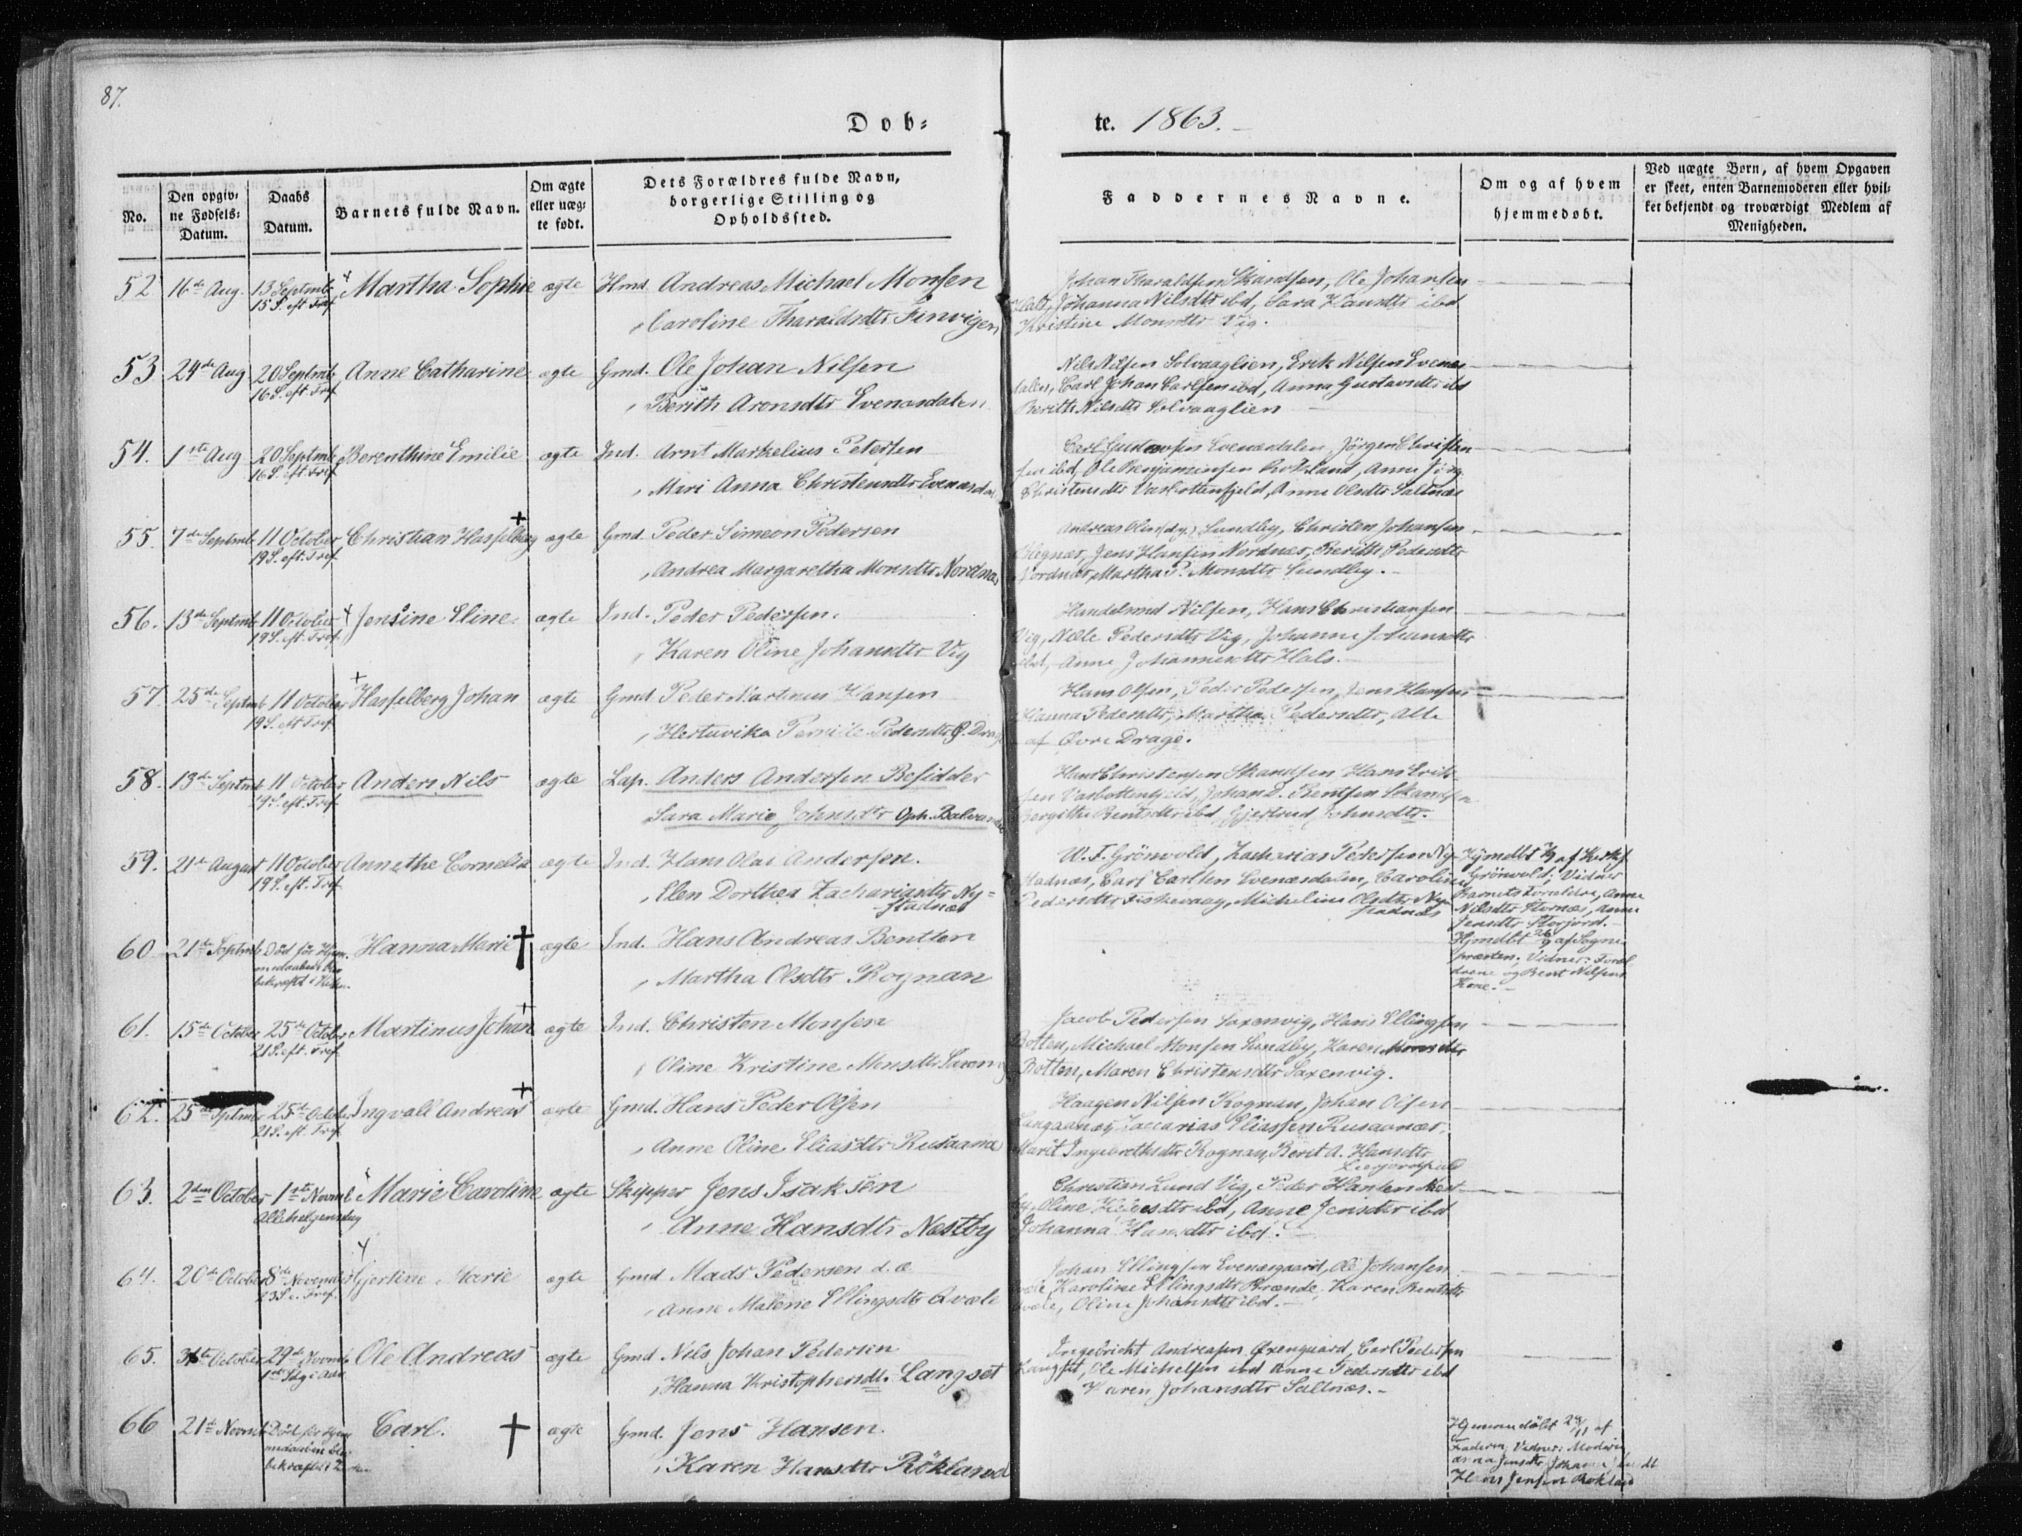 87.
Døb=
te. 1863.
No.
Den opgiv=
ne Fødsels=
Datum.
Daabs
Datum.
Barnets fulde Navn.
Om ægte
eller uæg=
te født.
Dets Forældres fulde Navn,
borgerlige Stilling og
Opholdssted.
Faddernes Navne.
Om og af hvem
hjemmedøbt.
Ved uægte Børn, af hvem Opgaven
er skeet, enten Barnemoderen eller hvil=
ket bekjendt og troværdigt Medlem af
Menigheden.
52 16de Aug. 13 Septmb Martha Sophie ægte Hmd. Andreas Michael Monsen
15 S. eft. Tref.
Caroline Tharaldsdtr Finvigen
Johan Tharaldsen Skandsen, Ole Johansen
Johanna Nilsdtr ibd, Sara Hansdtr ibd
Kristine Monsdtr Vig.
53 24de Aug 20 Septmb Anne Catharine ægte Gmd. Ole Johan Nilsen
16 S. eft. Tref.
Berith Aronsdtr Evenesdalen
Nils Nilsen Solvaaglien, Erik Nilsen Evenes
dalen, Carl Johan Carlsen ibd, Anna Gustavsdtr ibd
Berith Nilsdtr Solvaaglien
54. 1ste Aug 20 Septmb Berenthine Emilie ægte Ind. Arnt Markelius Petersen
16 S. eft. Tref.
Mari Anna Christensdtr Evenesdal
Carl Gustavsen Evenesdalen, Jörgen Christen
sen ibd, Ole Benjaminsen Rokland, Anne Jörg
Christensdtr Vasbottenfjeld, Anne Olsdtr Saltnes
55. 7de Septmb 11 October Christian Hasselberg ægte Gmd. Peder Simeon Pedersen
19 S. eft. Tref.
Andrea Margaretha Monsdtr Nordnæs
Sundby, Christen Johansen
Jens Hansen Nordnæs, Berith Pedersdtr
Nordnæs, Martha P. Monsdtr Sundby.
56. 13de Septmb 11 October Jensine Eline ægte Ind. Peder Pedersen.
19 S. eft. Tref.
Karen Oline Johansdtr Vig
Nilsen, Hans Christiansen
Vig, Pedersdtr Vig, Johanne Johansdtr
ibd, Anne Johannesdtr Hals.
57. 25de Septmb 11 October Hasselberg Johan ægte Gmd. Peder Martinus Hansen
19 S. eft Tref.
Pedersdtr Ø. Drage
Hans Olsen, Peder Pedersen, Jens Hansen
Hanna Pedersdtr, Martha Pedersdtr, Alle
af Øvre Drage.
58. 13de Septmb 11 October Anders Nils ægte Lap. Anders Andersen Besidder
19 S. eft. Tref.
Sara Marie Johnsdtr Oph.
Hans Christensen Skandsen Hans Erik=
sen Vasbottenfjeld, Johan D. Bentsen Skandsen
Bergithe Bentsdtr ibd, Gjertrud Johnsdtr.
59. 21de August 11 October Annethe Cornelia ægte Ind. Hans Olai Andersen.
19 S. eft. Tref.
Elen Dorthea Zachariasdtr Ny=
stadnæs
W. F. Grönvold, Zacharias Pedersen Ny=
stadnæs, Carl Carlsen Evenæsdalen, Caroline
Pedersdtr Fiskevaag, Micheline Olsdtr Ny=
stadnæs
Hjmdbt af
Grönvold; Vidner
Barnets Forældre, Anne
Nilsdtr Stornæs, Anne
Jensdtr Storjord.
60. 21de Septmb Död før Hjem= Hanna Marie ægte Ind. Hans Andreas Bentsen
medaaben blev
bekræftet i Kirken.
Martha Olsdtr Rognan
Hjmdbt 26/9 af Sogne
præsten; Vidner: Foræl
drene og Bent Nilsens
Kone.
61. 15de October 25de October Martinus Johan ægte Ind. Christen Monsen
21 S. eft. Tref.
Oline Kristine Monsdtr Saxenvig
Jacob Pedersen Saxenvig, Hans Ellingsen
Botten, Michael Monsen Sundby, Karen Monsdtr
Botten, Maren Christensdtr Saxenvig.
62. 25de Septmb 25de October Ingvall Andreas ægte Gmd. Hans Peder Olsen
21 S. eft. Tref.
Anne Oline Eliasdtr Rusaanæs
Haagen Nilsen Rognan, Johan Olsen
Zacarias Eliassen Rusaanæs.
Marit Ingebrethsdtr Rognan, Beret A. Hansdtr
63. 2den October 1ste Novmb Marie Caroline ægte Skipper Jens Isaksen
Allehelgensdag
Anne Hansdtr Nestby
Christian Lund Vig, Peder Hansen Nest=
by, Oline ibd, Anne Jensdtr ibd
Johanna Hansdtr ibd.
64. 20de October 8de November Gjertine Marie ægte Gmd Mads Pedersen d. æ
23 S. e. Tref.
Anne Malene Ellingsdtr Qvæle
Johan Ellingsen Evenesgaard, Ole Johansen
Karoline Ellingsdtr Brænde, Karen Bentsdtr
Qvæle, Oline Johansdtr ibd.
65. October 29de Novmb Ole Andreas ægte Gmd Nils Johan Pedersen
1ste Sdg i Adv.
Hanna Kristophersdtr Langset
Ingebricht Andreasen Øxengaard, Carl Pedersen
Langset, Ole Michelsen ibd Anne Pedersdtr ibd
Karen Johansdtr Saltnæs.
66 21de Novmb Död før Hjem Carl. ægte Gmd. Jens Hansen.
medaaben blev
bekræftet i Kirken
Karen Hansdtr Rökland
Hjemmedöbt 24/11 af
Faderen; Vidner: Moderen
Anna Jensdtr Johanna
Hans Jensen Rokland